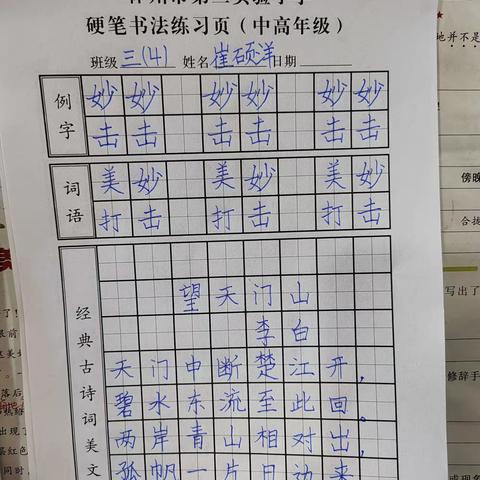 硬笔书法练习页（中高年级）
班级 三(4) 姓名 崔硕洋 日期
例字
妙妙 妙妙 妙妙
击击 击击 击击
词语
美妙 美妙 美妙
打击 打击 打击
经典古诗词美文
望天门山
李白
天门中断楚江开，
碧水东流至此回。
两岸青山相对出，
孤帆一片日边来
地并不是
傍晚
写出了
修辞手